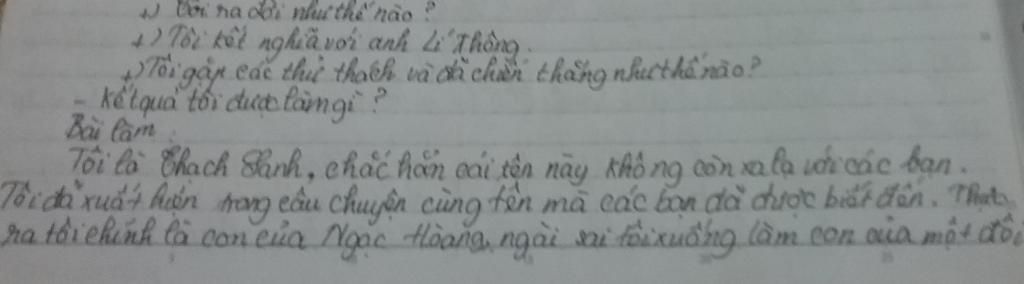 +) Tôi ra đời như thế nào?
+) Tôi kết nghĩa với anh Lí Thông.
+) Tôi gặp các thử thách và đã chiến thắng như thế nào?
- Kết quả tôi được làm gì?
Bài làm
Tôi là Thạch Sanh, chắc hẳn cái tên này không còn xa lạ với các bạn.
Tôi đã xuất hiện trong câu chuyện cùng tên mà các bạn đã được biết đến. Thật
ra tôi chính là con của Ngọc Hoàng, ngài sai tôi xuống làm con của một đôi